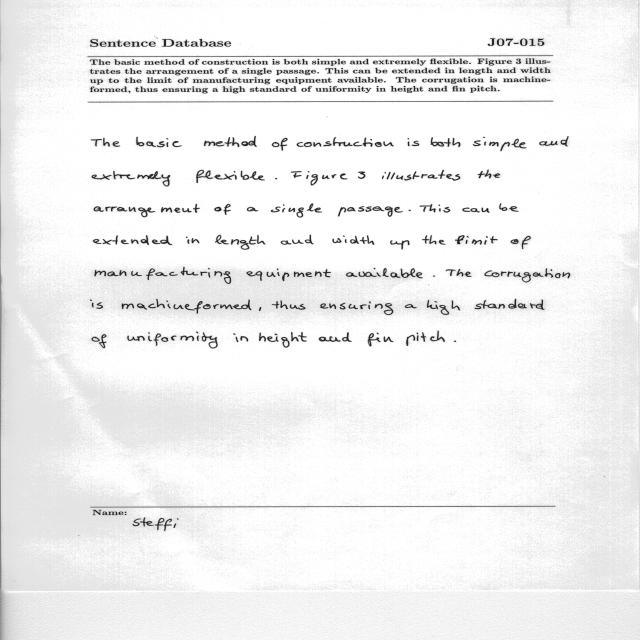 Sentence Database J07-015
The basic method of construction is both simple and extremely flexible. Figure 3 illus-
trates the arrangement of a single passage. This can be extended in length and width
up to the limit of manufacturing equipment available. The corrugation is machine-
formed, thus ensuring a high standard of uniformity in height and fin pitch.
The basic method of construction is both simple and
extremely flexible. Figure 3 illustrates the
arrangement of a single passage. This can be
extended in length and width up the limit of
manufacturing equipment available. The corrugation
is machineformed, thus ensuring a high standard
of uniformity in height and fin pitch.
Name:
Steffi